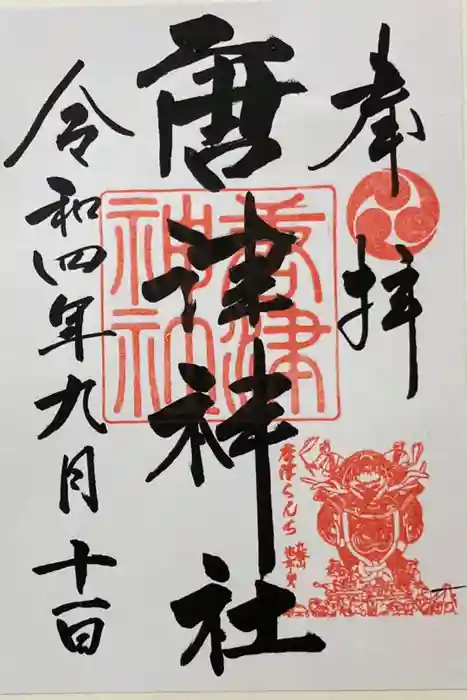 奉拝
唐津神社
令和四年九月十一日
唐津神社
唐津くんち